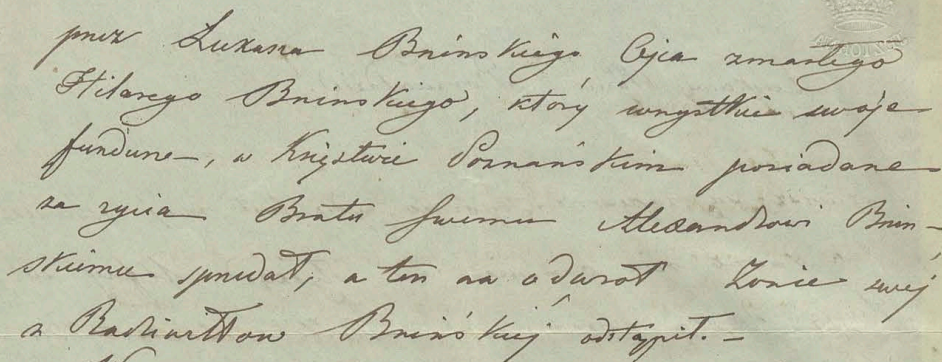 przez Lukasza Bninskiego Ojca zmarłego
Hilarego Bninskiego, który wszystkie swoje
fundusze, w Księztwie Poznańskim posiadane
za zycia Bratu swemu Alexandrowi Bnin-
skiemu sprzedał, a ten na odwrot Zonie swej
z Bnińskiej odstąpił. -